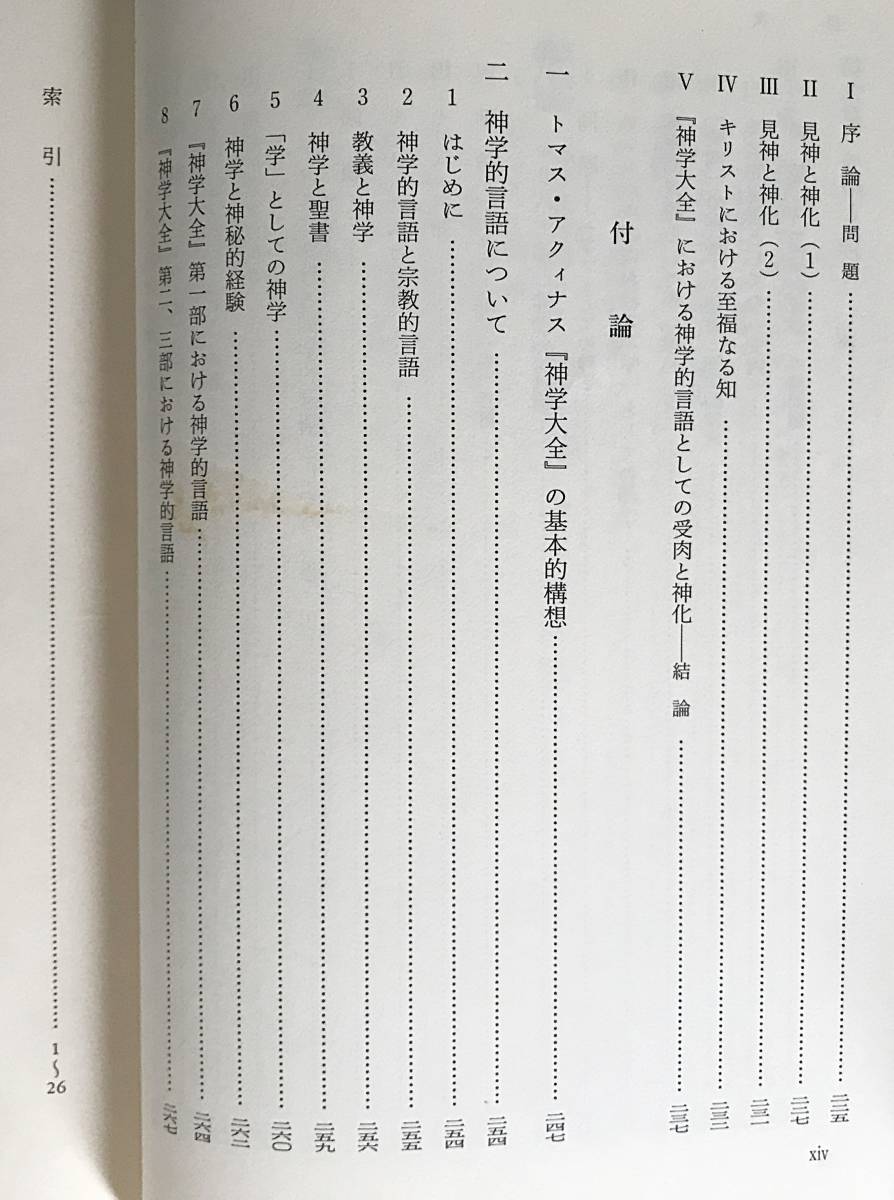 I 序論——問題……二二五
II 見神と神化（1）……二二七
III 見神と神化（2）……二三一
IV キリストにおける至福なる知……二三三
V 『神学大全』における神学的言語としての受肉と神化——結論……二三七
付論
一 トマス・アクィナス『神学大全』の基本的構想……二四七
二 神学的言語について……二五四
1 はじめに……二五四
2 神学的言語と宗教的言語……二五五
3 教義と神学……二五六
4 神学と聖書……二五九
5 「学」としての神学……二六〇
6 神学と神秘的経験……二六二
7 『神学大全』第一部における神学的言語……二六四
8 『神学大全』第二、三部における神学的言語……二六七
索引……1〜26
xiv